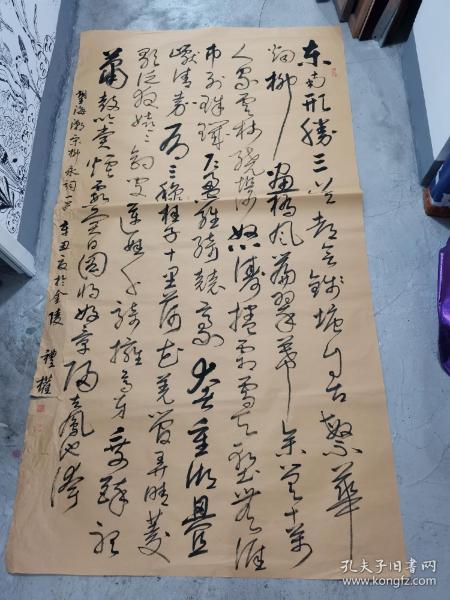 东南形勝三吴都会錢塘自古繁華
烟柳画橋風簾翠幕参差十萬
人家雲樹繞堤沙怒濤捲霜雪天堑無涯
市列珠璣户盈羅綺競豪奢重湖疊
巘清嘉有三秋桂子十里荷花羌管弄晴菱
歌泛夜嬉嬉釣叟蓮娃千騎擁高牙乘醉聽
蕭鼓吟賞煙霞異日圖將好景歸去鳳池誇
望海潮宋柳永詞一首 辛丑夏於金陵 禮權
孔夫子旧书网
www.kongfz.com